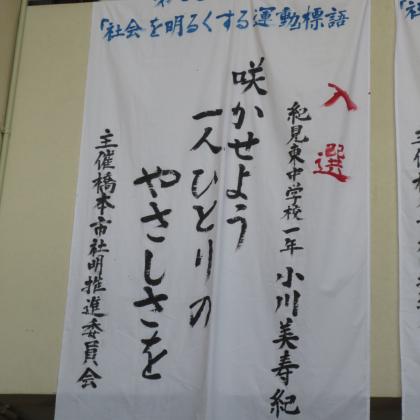 「社会を明るくする運動標語
入選
紀見東中学校一年 小川美寿紀
咲かせよう
一人ひとりの
やさしさを
主催橋本市社明推進委員会